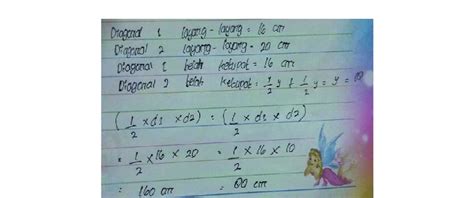 Diagonal 1 layang - layang = 16 cm
Diagonal 2 layang - layang = 20 cm
Diagonal 1 belah ketupat = 16 cm
Diagonal 2 belah ketupat = 1/2 y + 1/2 y = y = 10
(1/2 x d1 x d2) = (1/2 x d1 x d2)
= 1/2 x 16 x 20 = 1/2 x 16 x 10
= 160 cm = 80 cm